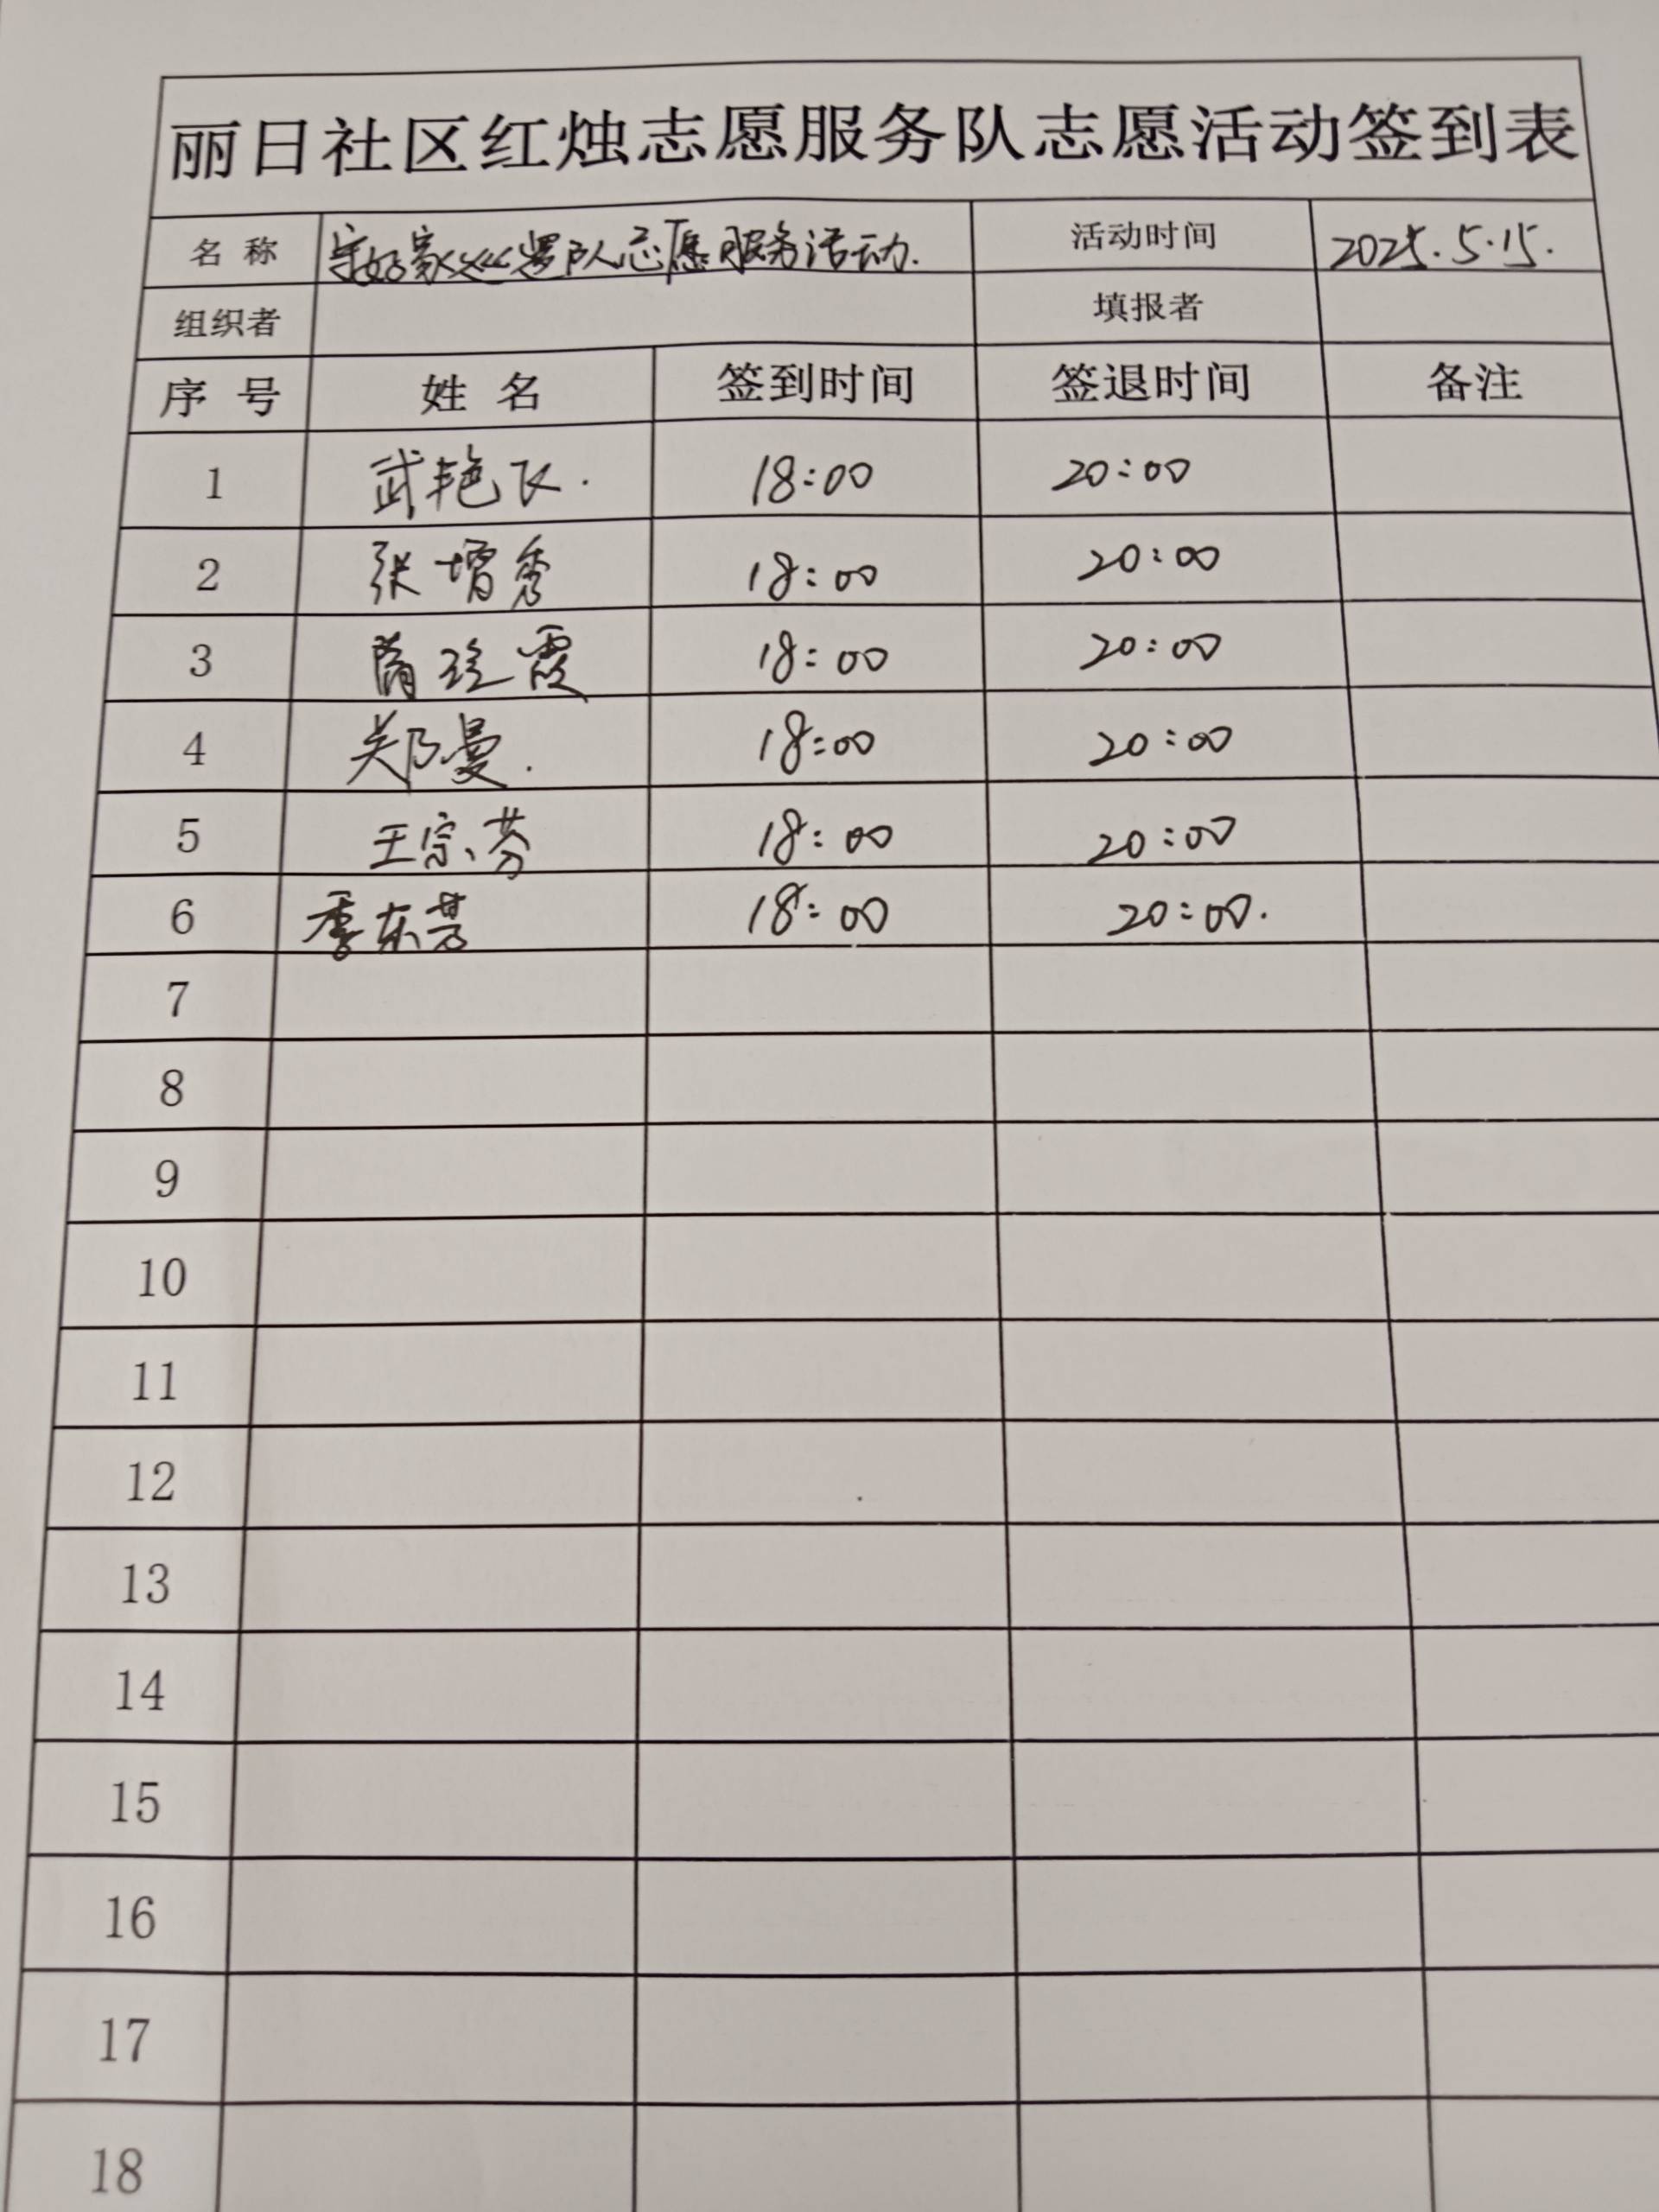 丽日社区红烛志愿服务队志愿活动签到表
名 称 守好家巡逻队志愿服务活动. 活动时间 2025.5.15.
组织者 填报者
序 号 姓 名 签到时间 签退时间 备注
1 武艳飞. 18:00 20:00
2 张增秀 18:00 20:00
3 隋玲霞 18:00 20:00
4 郑曼. 18:00 20:00
5 王宗芬 18:00 20:00
6 季东芳 18:00 20:00.
7
8
9
10
11
12
13
14
15
16
17
18